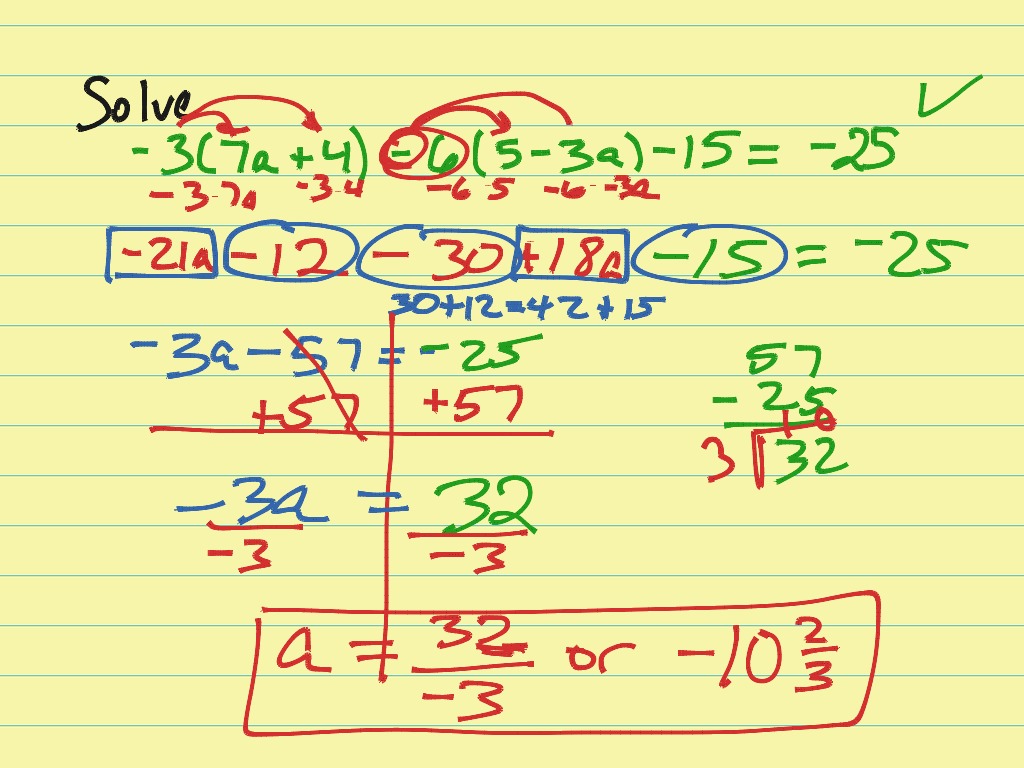 Solve
-3(7a+4)-6(5-3a)-15=-25
-3·7a -3·4 -6·5 -6·-3a
-21a-12-30+18a-15=-25
30+12=42+15
-3a-57=-25
+57 +57
57
-25
10
3 32
-3a=32
-3 -3
a=32/-3 or -10 2/3